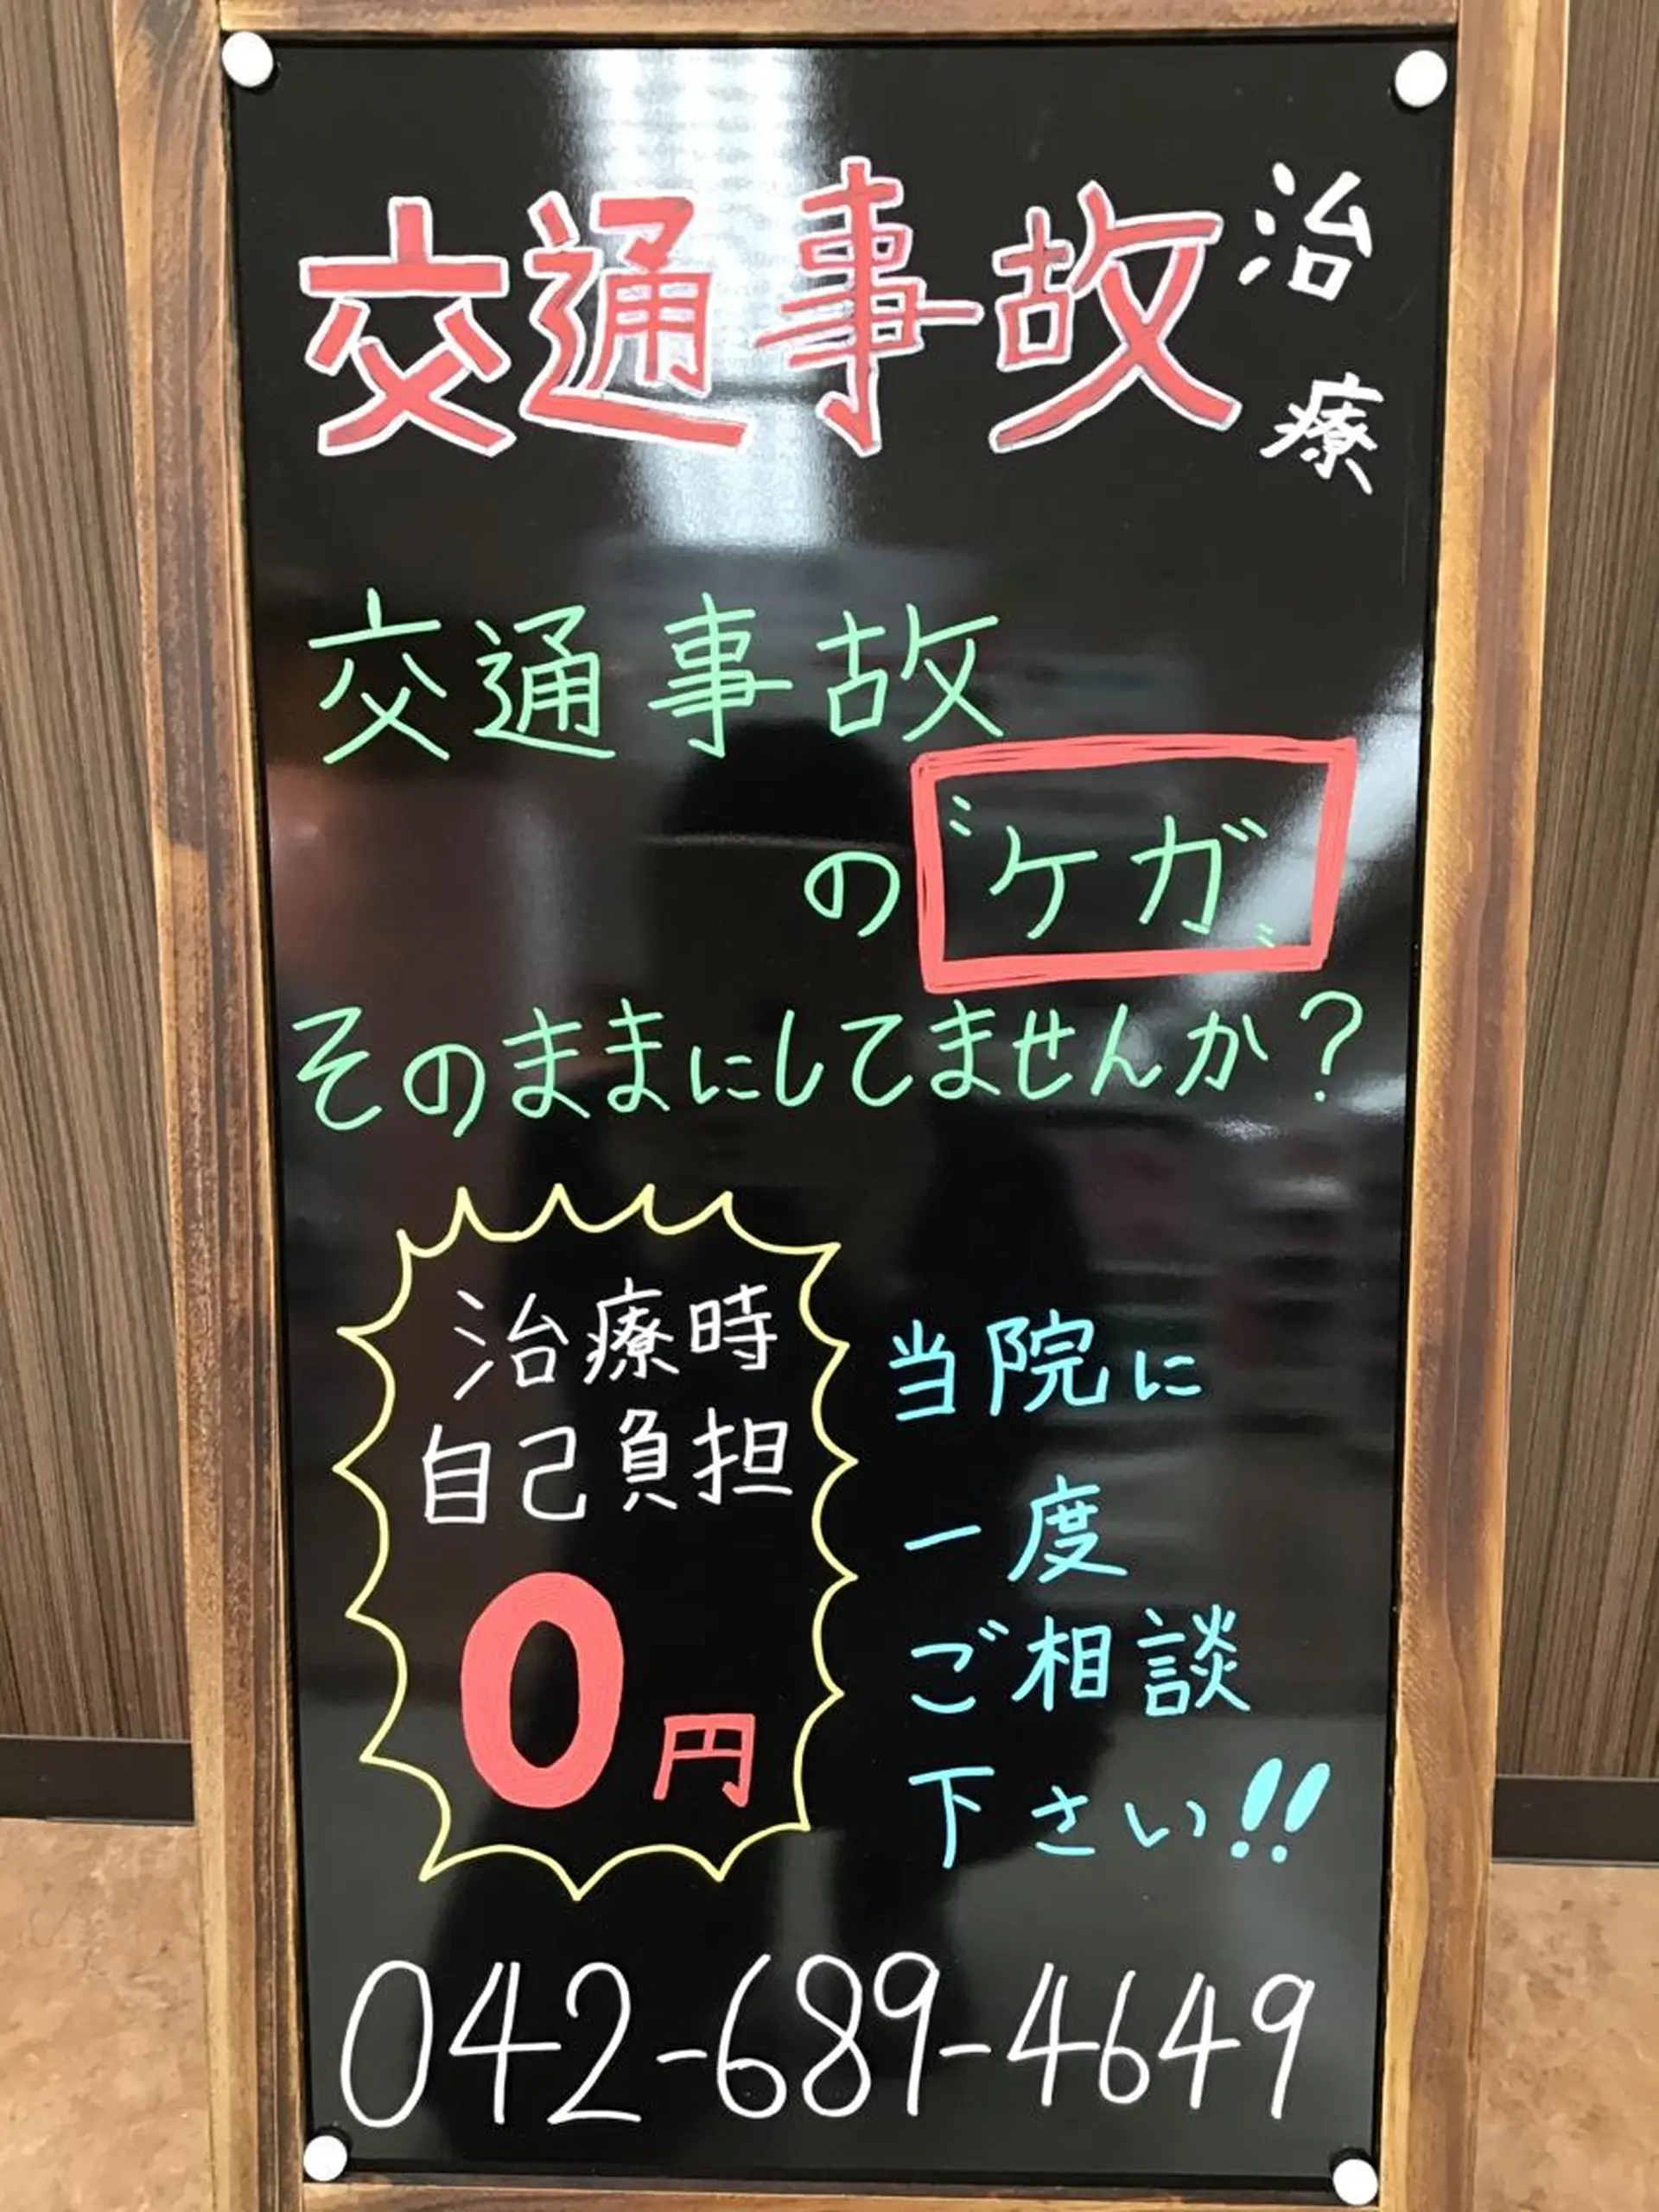 交通事故治療
交通事故
の〝ケガ〟
そのままにしてませんか？
治療時
自己負担
0円
当院に
一度
ご相談
下さい!!
042-689-4649